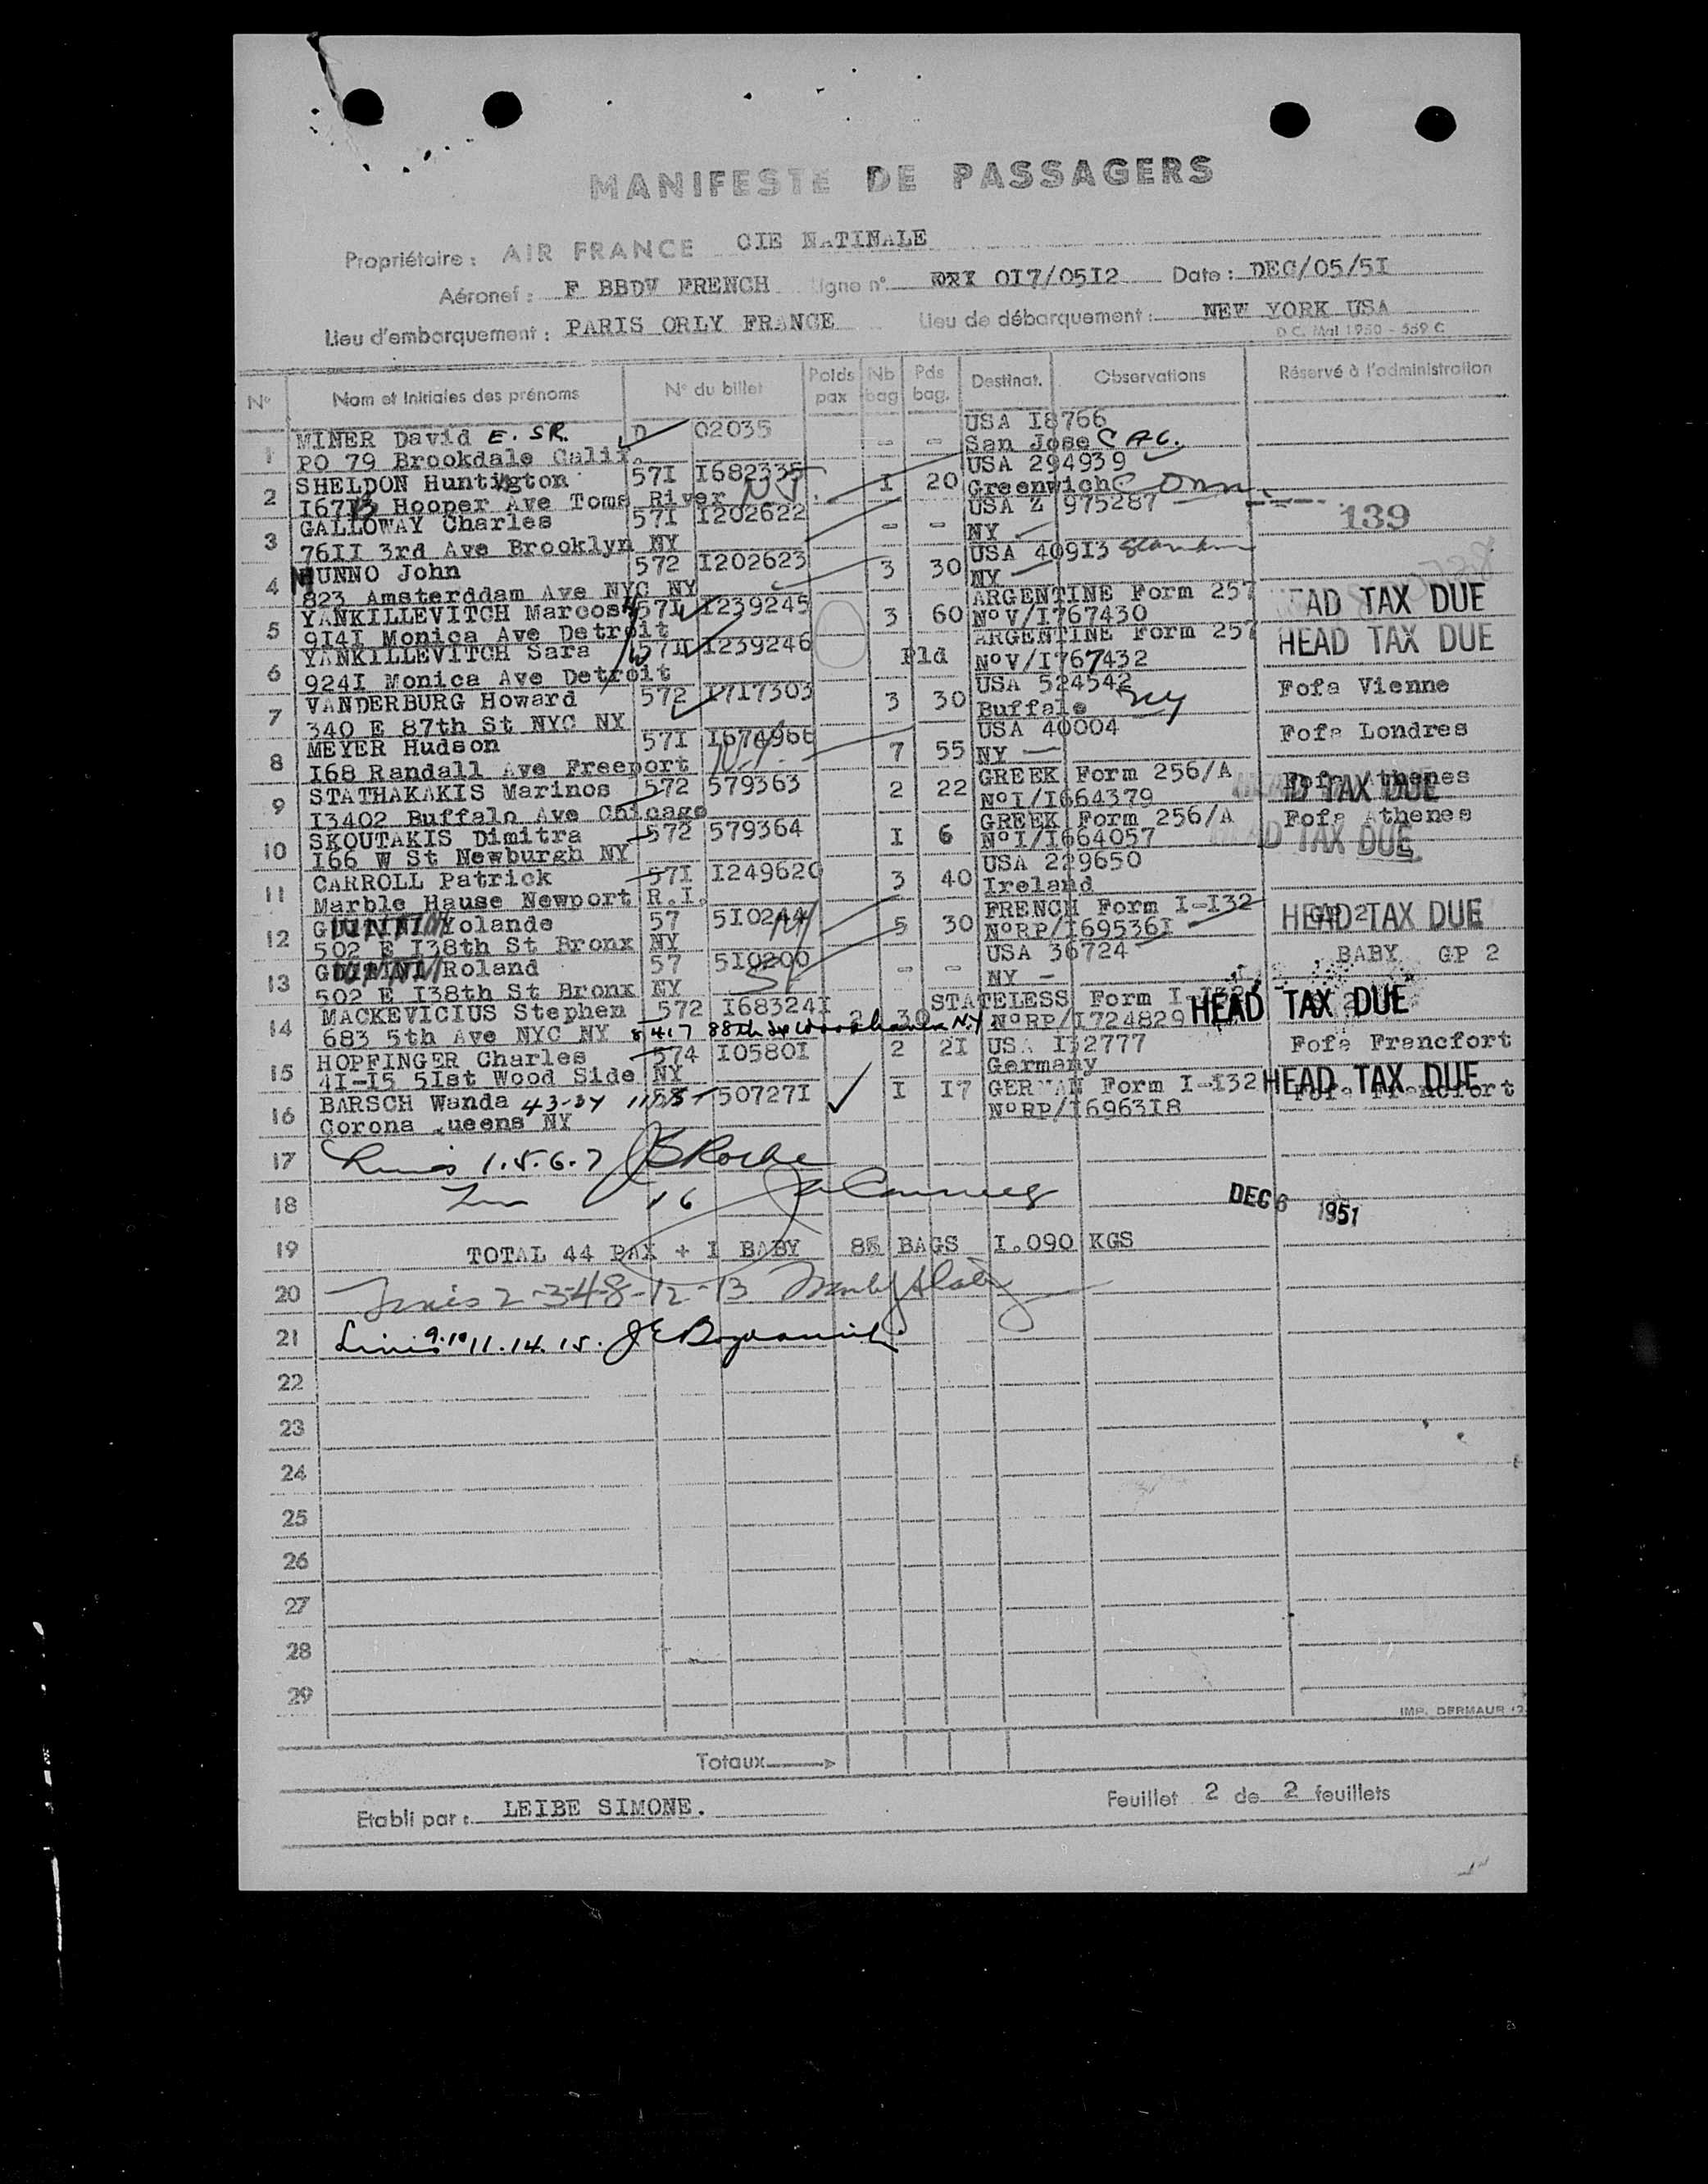 MANIFESTE DE PASSAGERS
Propriétaire : AIR FRANCE CIE NATINALE
Aéronef : F BBDV FRENCH Ligne n° 0I7/05I2 Date : DEC/05/5I
Lieu d'embarquement : PARIS ORLY FRANCE Lieu de débarquement : NEW YORK USA
D.C. Mal 1950 - 559 C
N° Nom et initiales des prénoms N° du billet Poids pax Nb bag Pds bag. Destinat. Observations Réservé à l'administration
1 MINER David E. SR. D 02035 - - USA I8766
PO 79 Brookdale Calif. San Jose CAL.
2 SHELDON Huntington 57I I682335 I 20 USA 294939
Hooper Ave Toms River N.J. Greenwich Conn.
3 GALLOWAY Charles 57I I202622 - - USA Z 975287 139
76II 3rd Ave Brooklyn NY NY
4 NUNNO John 572 I202623 3 30 USA 409I3
823 Amsterddam Ave NYC NY NY
5 YANKILLEVITCH Marcos 57I I239245 3 60 ARGENTINE Form 257 HEAD TAX DUE
9I4I Monica Ave Detroit N°V/I767430
6 YANKILLEVITCH Sara 57I I239246 Pld ARGENTINE Form 257 HEAD TAX DUE
924I Monica Ave Detroit N°V/I767432
7 VANDERBURG Howard 572 I717303 3 30 USA 524542 Fofa Vienne
340 E 87th St NYC NY Buffalo NY
8 MEYER Hudson 57I I674966 7 55 USA 40004 Fofa Londres
I68 Randall Ave Freeport N.Y. NY
9 STATHAKAKIS Marinos 572 579363 2 22 GREEK Form 256/A Fofa Athenes
I3402 Buffalo Ave Chicago N°I/I664379 HEAD TAX DUE
10 SKOUTAKIS Dimitra 572 579364 I 6 GREEK Form 256/A Fofa Athenes
I66 W St Newburgh NY N°I/I664057 HEAD TAX DUE
11 CARROLL Patrick 57I I249620 3 40 USA 229650
Marble Hause Newport R.I. Ireland
12 Yolande 57 5I0244 5 30 FRENCH Form I-I32 GP 2 HEAD TAX DUE
502 E I38th St Bronx NY N°RP/I69536I
13 Roland 57 5I0200 - - USA 36724 BABY GP 2
502 E I38th St Bronx NY NY
14 MACKEVICIUS Stephen 572 I68324I 2 30 STATELESS Form I-I32 HEAD TAX DUE
683 5th Ave NYC NY 8417 88th St Woodhaven N.Y N°RP/I724829
15 HOPFINGER Charles 574 I0580I 2 2I USA I32777 Fofa Francfort
4I-I5 5Ist Wood Side NY Germany
16 BARSCH Wanda 43-34 111 St 50727I I I7 GERMAN Form I-I32 HEAD TAX DUE Fofa Francfort
Corona Queens NY N°RP/I6963I8
17 Lines 1.5.6.7
18 16 DEC 6 1951
19 TOTAL 44 PAX + I BABY BAGS I.090 KGS
20 Lines 2-3-4-8-12-13
21 Lines 9.10 11.14.15.
22
23
24
25
26
27
28
29
IMP. DERMAUR
Totaux
Etabli par : LEIBE SIMONE. Feuillet 2 de 2 feuillets